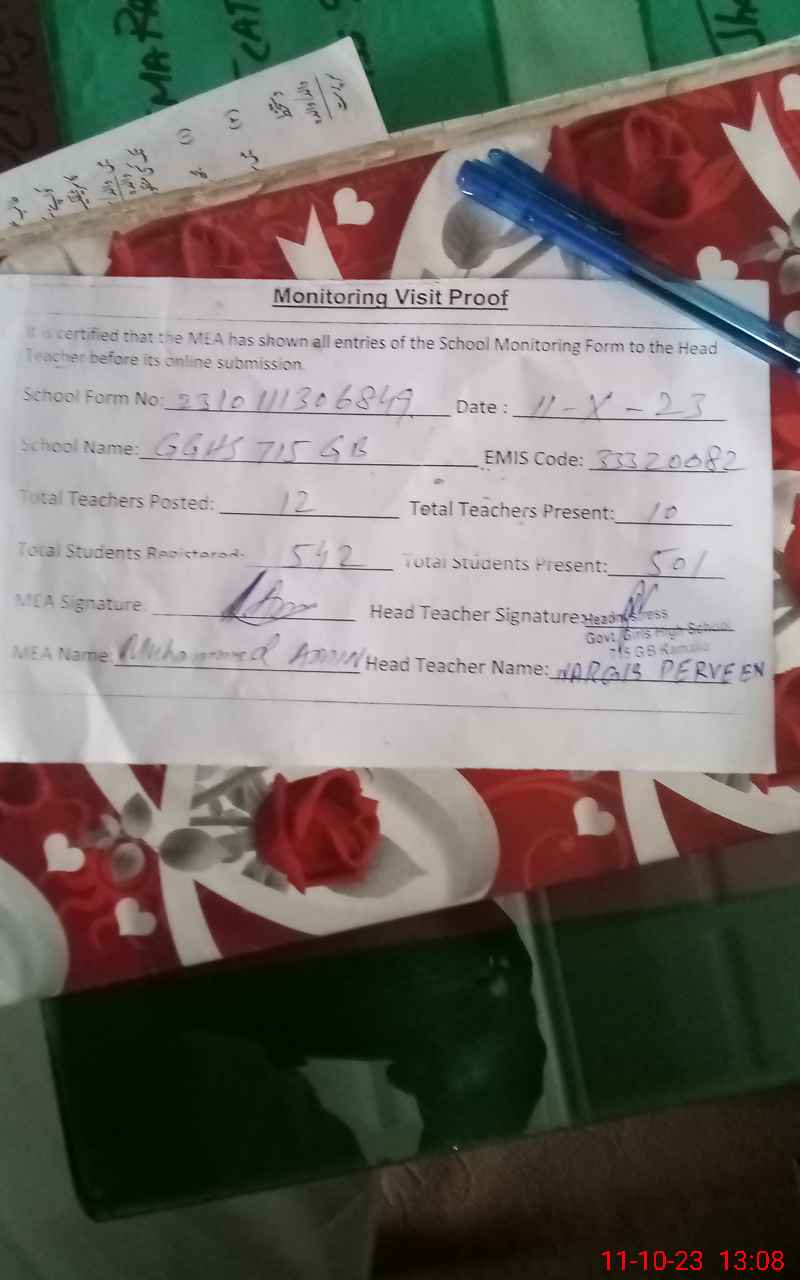 MA RA
CAT
Monitoring Visit Proof
It is certified that the MEA has shown all entries of the School Monitoring Form to the Head
Teacher before its online submission.
School Form No: 2310111306849 Date : 11-X-23
School Name: GGHS 715 GB EMIS Code: 33320082
Total Teachers Posted: 12 Total Teachers Present: 10
Total Students Registered: 542 Total Students Present: 501
MEA Signature: Head Teacher Signature:
Headmistress
Govt. Girls High School
715 GB Kamalia
MEA Name: Muhammed AMIN Head Teacher Name: NARGIS PERVEEN
11-10-23 13:08